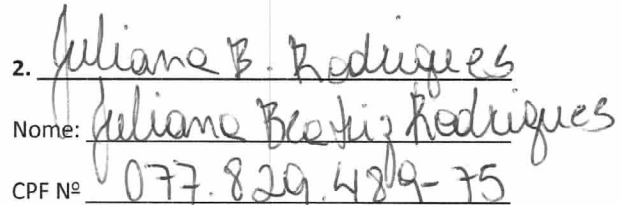 2. Juliana B. Rodrigues
Nome: Juliana Beatriz Rodrigues
CPF Nº 077.829.489-75